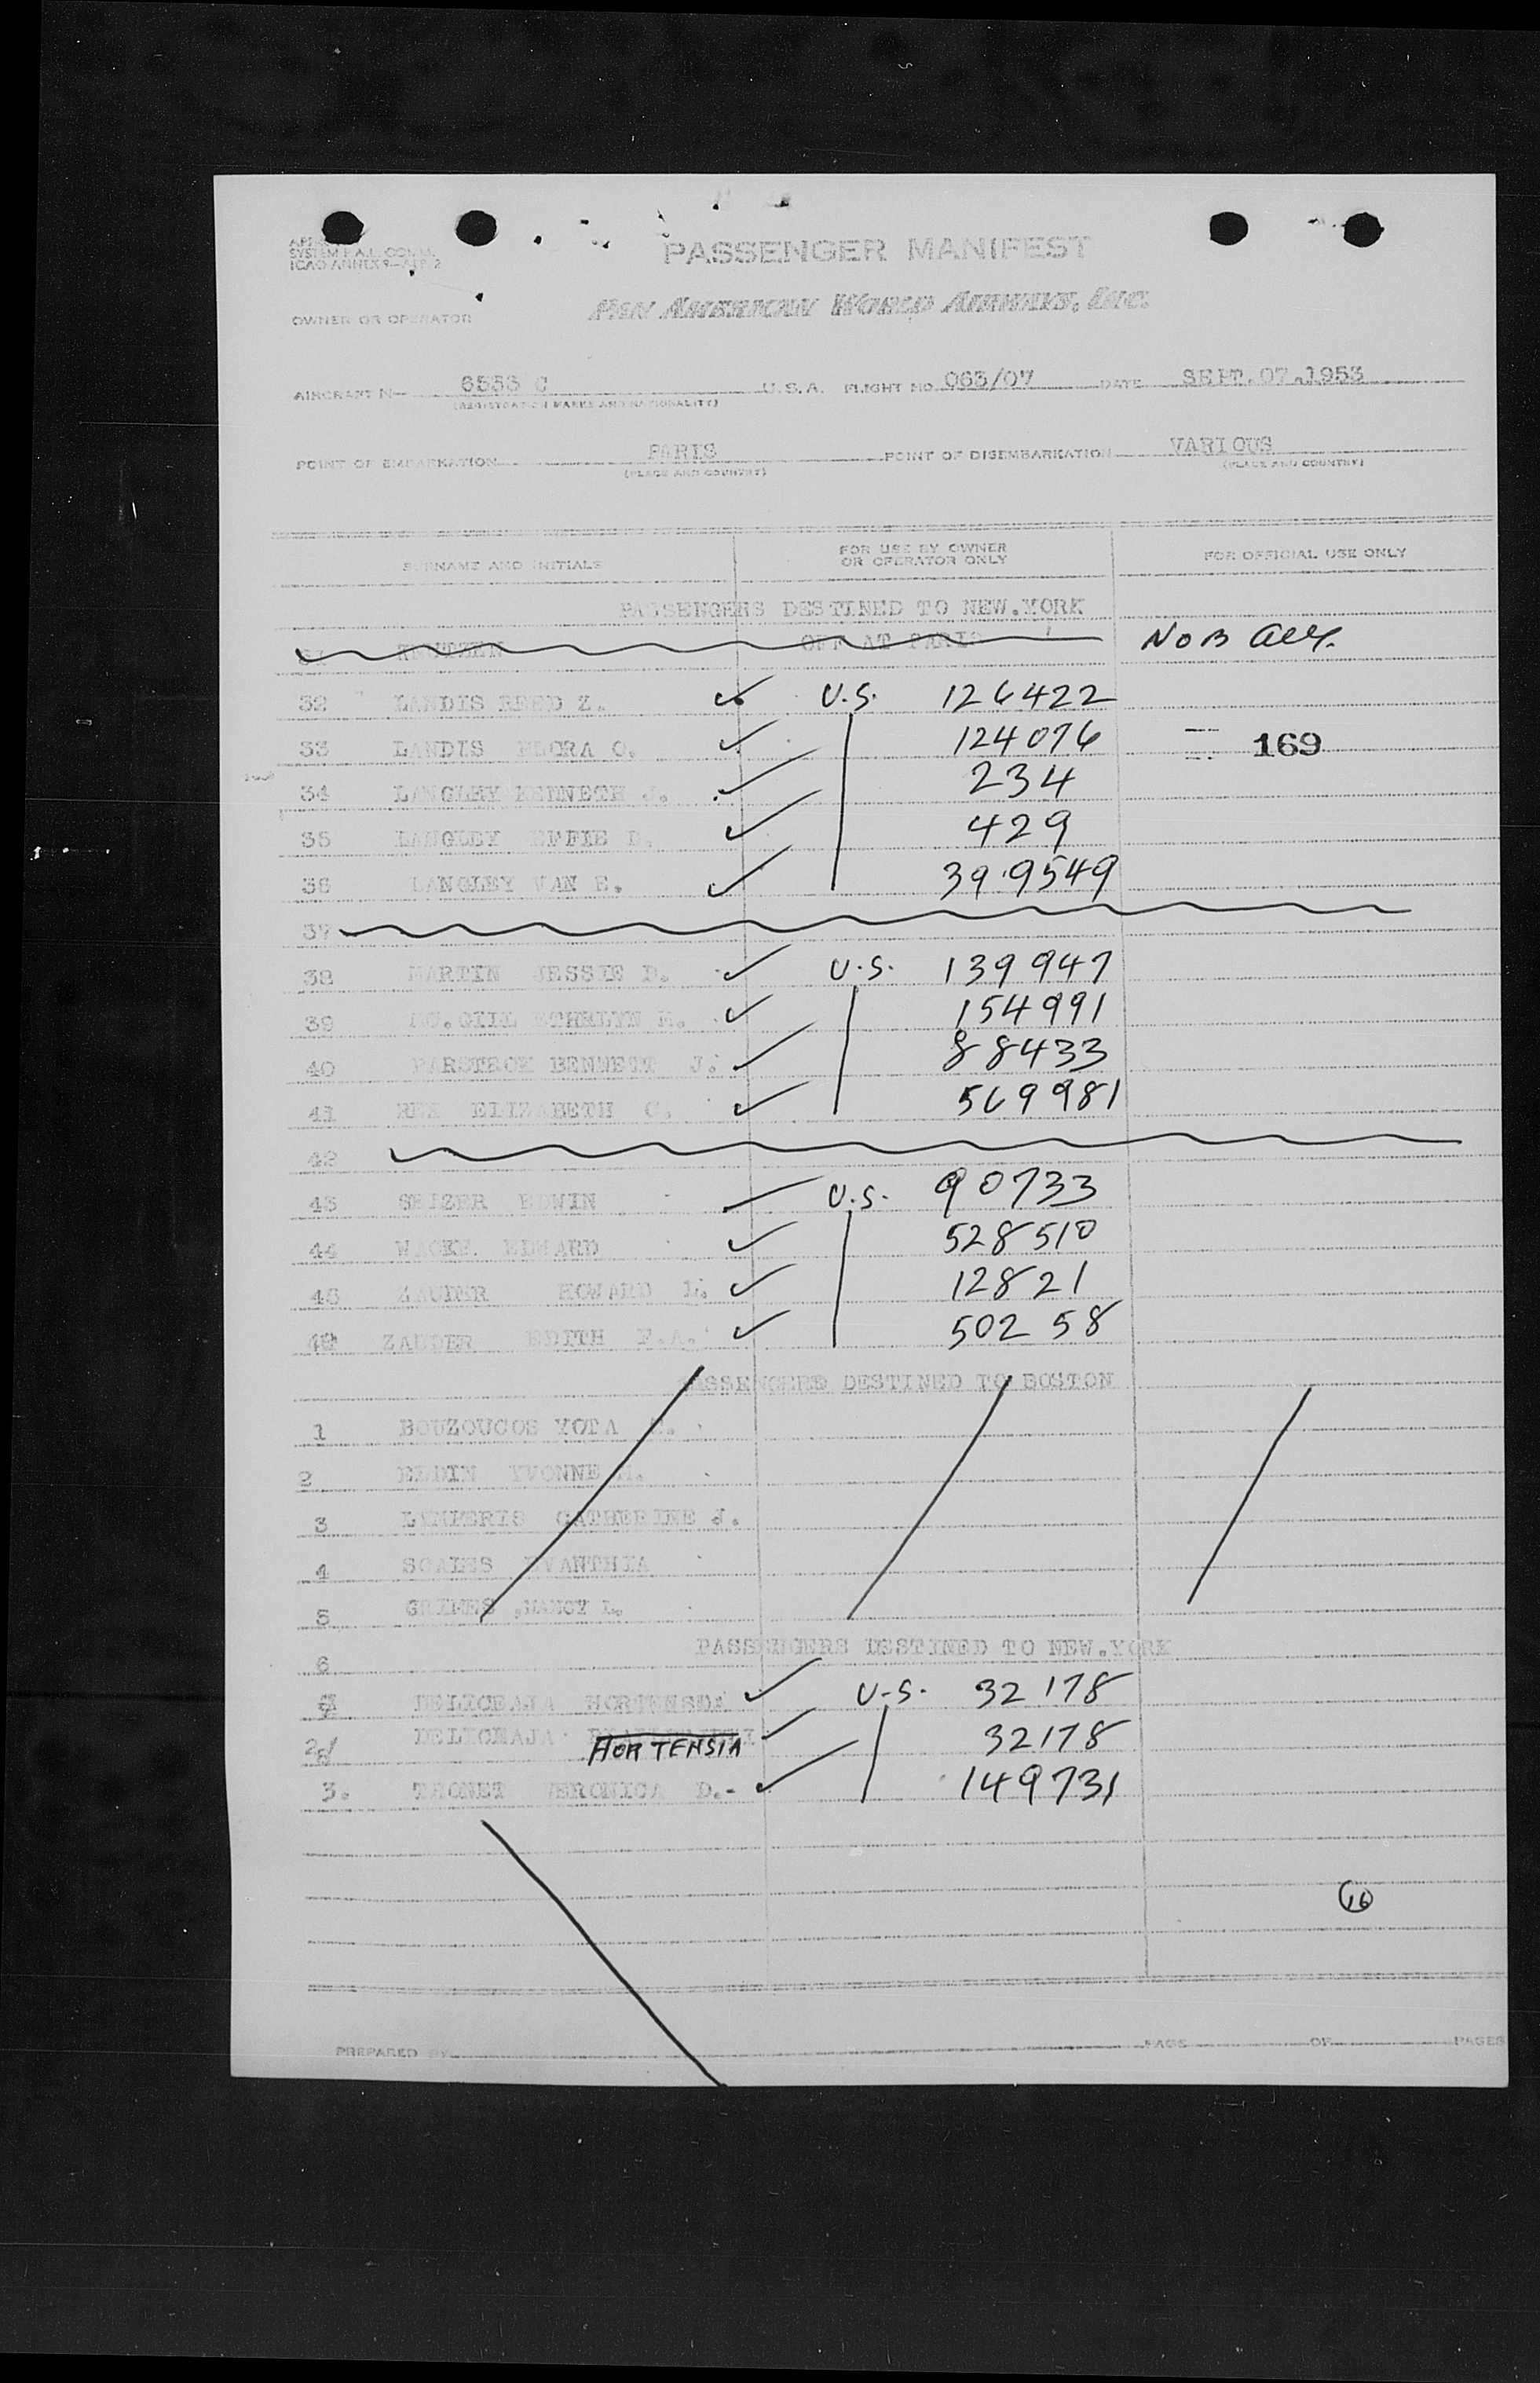 SYSTEM P.A.L. COMM.
ICAO ANNEX 9—APP. 2
PASSENGER MANIFEST
OWNER OR OPERATOR
PAN AMERICAN WORLD AIRWAYS, INC.
AIRCRAFT N— 6533 C U.S.A. FLIGHT NO. 063/07 DATE SEPT.07.1953
(REGISTRATION MARKS AND NATIONALITY)
POINT OF EMBARKATION PARIS POINT OF DISEMBARKATION VARIOUS
(PLACE AND COUNTRY) (PLACE AND COUNTRY)
SURNAME AND INITIALS FOR USE BY OWNER OR OPERATOR ONLY FOR OFFICIAL USE ONLY
PASSENGERS DESTINED TO NEW.YORK
31 OFF AT PARIS NOB
32 LANDIS REED Z. U.S. 126422
33 LANDIS FLORA O. 124076 169
34 LANGLEY KENNETH J. 234
35 LANGLEY EFFIE 429
36 LANGLEY VAN E. 39.9549
37
38 MARTIN JESSIE D. U.S. 139947
39 MC.GILL ETHELYN 154991
40 BENNETT J. 88433
41 REA ELIZABETH C. 569981
42
43 EDWIN U.S. 90733
44 EDWARD 528510
45 ZAUDER HOWARD L. 12821
46 ZAUDER EDITH F.A. 502 58
PASSENGERS DESTINED TO BOSTON
1 BOUZOUCOS YOTA
2 YVONNE
3 LYMPERIS CATHERINE J.
4 SCALES EVANTHIA
5 GRIMES ,NANCY L.
PASSENGERS DESTINED TO NEW.YORK
6
DELICEAJA HORTENSDA U.S. 32178
2 DELICEAJA HORTENSIA 32178
3. VERONICA D.- 149731
16
PREPARED BY PAGE OF PAGES